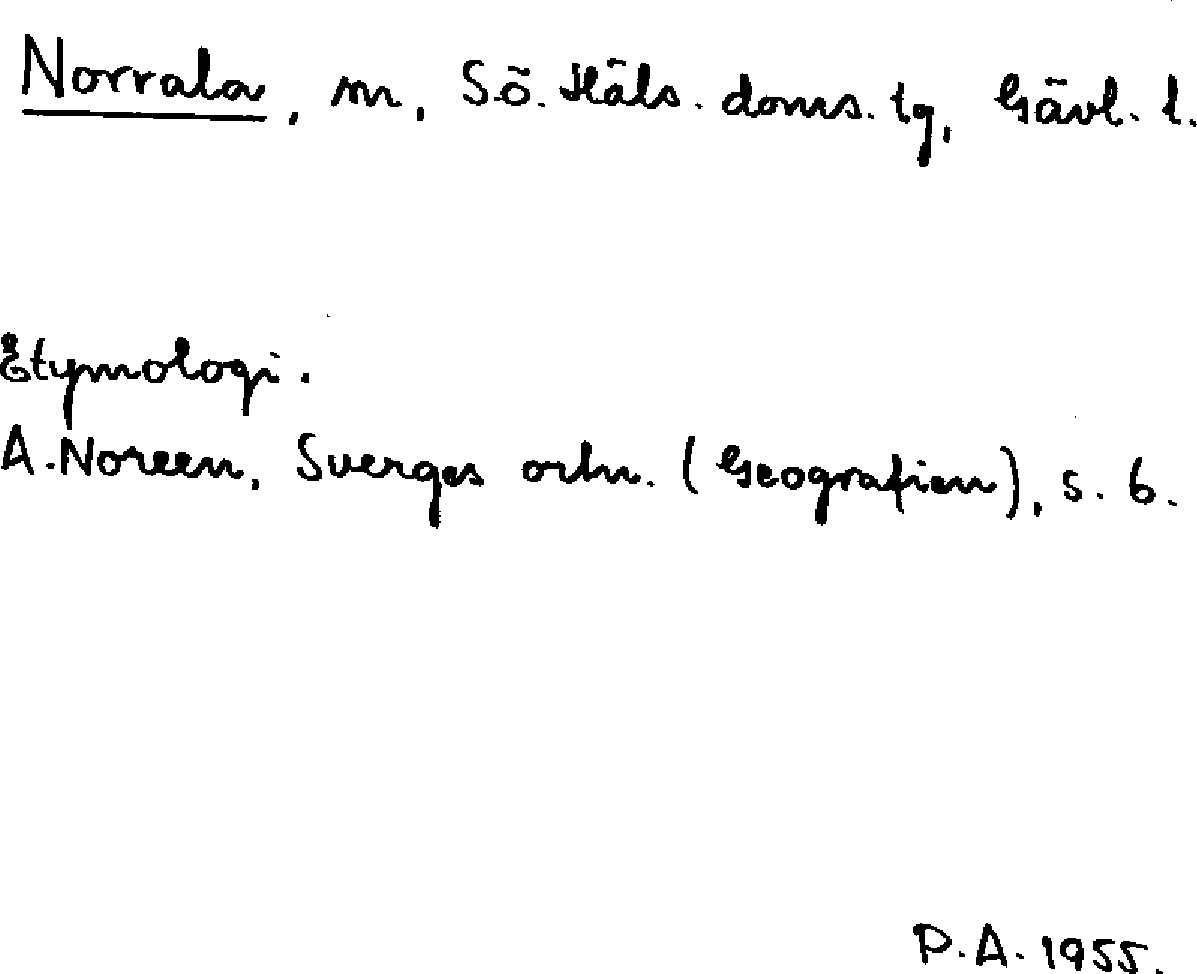 Norrala, sn, Sö. Häls. doms. tg, Gävl. l.
Etymologi.
A. Noreen, Sverges ortn. (Geografien), s. 6.
P.A. 1955.